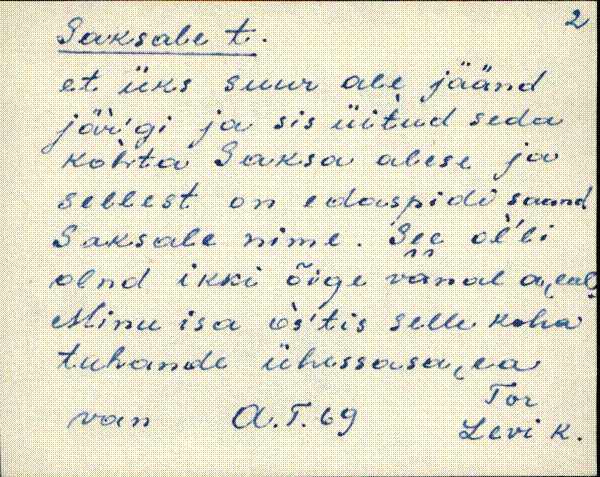 2
Saksale t.
et üks suur ale jäänd
jäŕ'gi ja sis üitud seda
kòhta Saksa alese ja
sellest on edaspidi saand
Saksale nime. See òl'li
olnd ikki õige vanal a,eal.
Minu isa òs'tis selle koha
tuhande ühessasa,ea
van A.T. 69 Tor
Levi k.